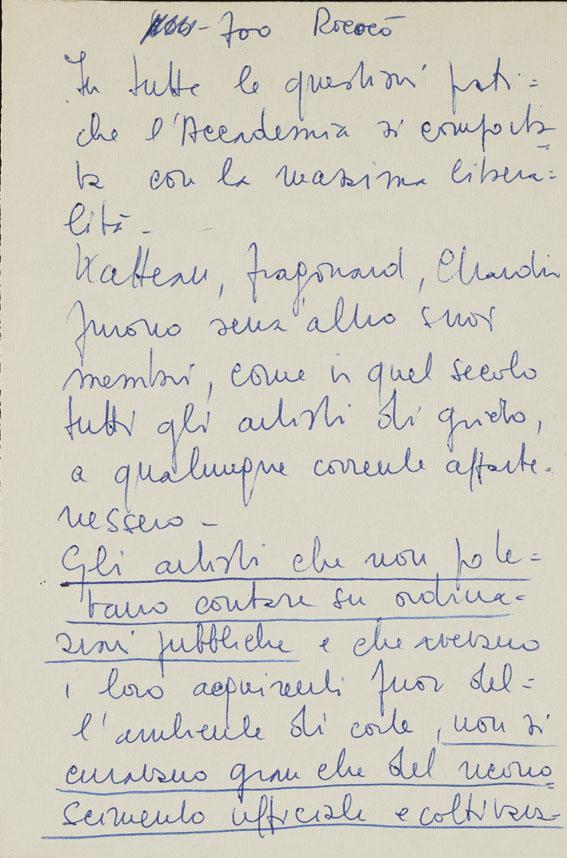 - 700 Rococò
In tutte le questioni prati=
che l'Accademia si comporta=
va con la massima libera=
lità -
Watteau, Fragonard, Chardin
furono senz'altro suoi
membri, come in quel secolo
tutti gli artisti di grido,
a qualunque corrente apparte-
nessero -
Gli artisti che non pote=
vano contare su ordina=
zioni pubbliche e che avevano
i loro acquirenti fuor del=
l'ambiente di corte, non si
curavano gran che del ricono
scimento ufficiale e coltivava-